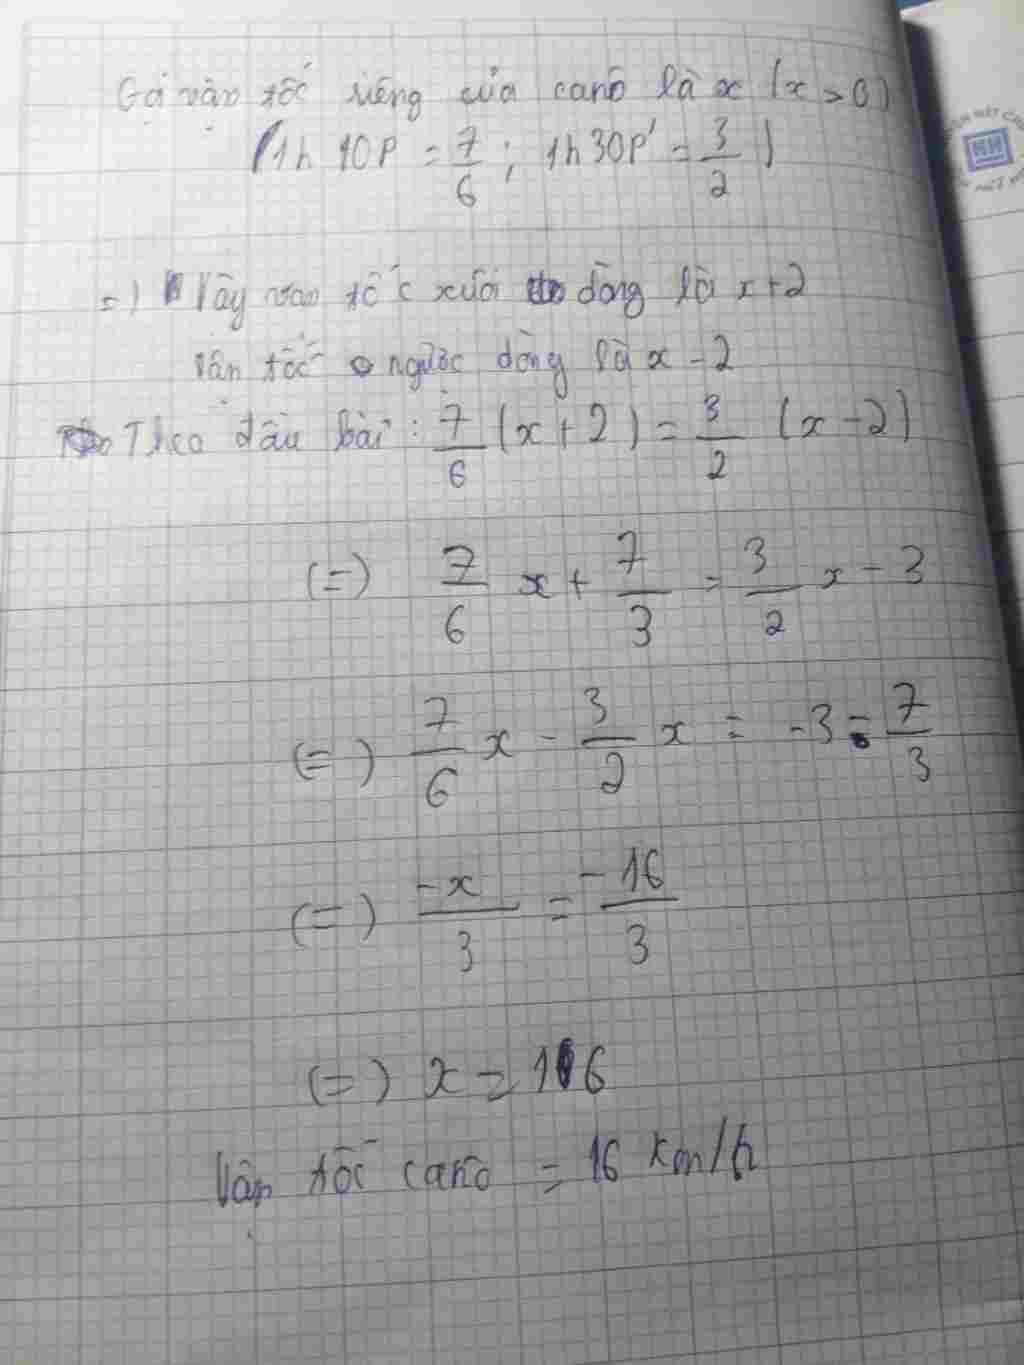 Gọi vận tốc riêng của canô là x (x > 0)
(1h 10P = 7/6 ; 1h 30P' = 3/2 )
=) Vậy vận tốc xuôi dòng là x+2
Vận tốc ngược dòng là x - 2
Theo đầu bài : 7/6 (x+2) = 3/2 (x-2)
(=) 7/6 x + 7/3 = 3/2 x - 3
(=) 7/6 x - 3/2 x = -3 - 7/3
(=) -x/3 = -16/3
(=) x = 16
Vận tốc canô = 16 km/h
HH